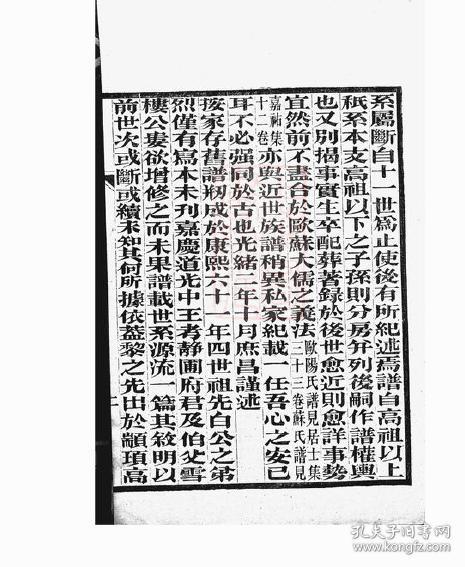 系屬斷自十一世爲止使後有所紀述焉譜自高祖以上
秖系本支高祖以下之子孫則分房幷列後嗣作譜權輿
也又別揭事實生卒配葬著錄於後世愈近則愈詳事勢
宜然前不盡合於歐蘇大儒之義法歐陽氏譜見居士集三十三卷蘇氏譜見
嘉祐集十二卷亦與近世族譜稍異私家紀載一任吾心之安已
耳不必强同於古也光緒二年十月庶昌謹述
按家存舊譜剏成於康熙六十年四世祖先白公之第
烈僅有寫本未刊嘉慶道光中王考靜圃府君及伯父雪
樓公婁欲增修之而未果譜載世系源流一篇其敘明以
前世次或斷或續未知其何所據依蓋黎之先出於顓頊高
孔夫子旧书网
kongfz.com